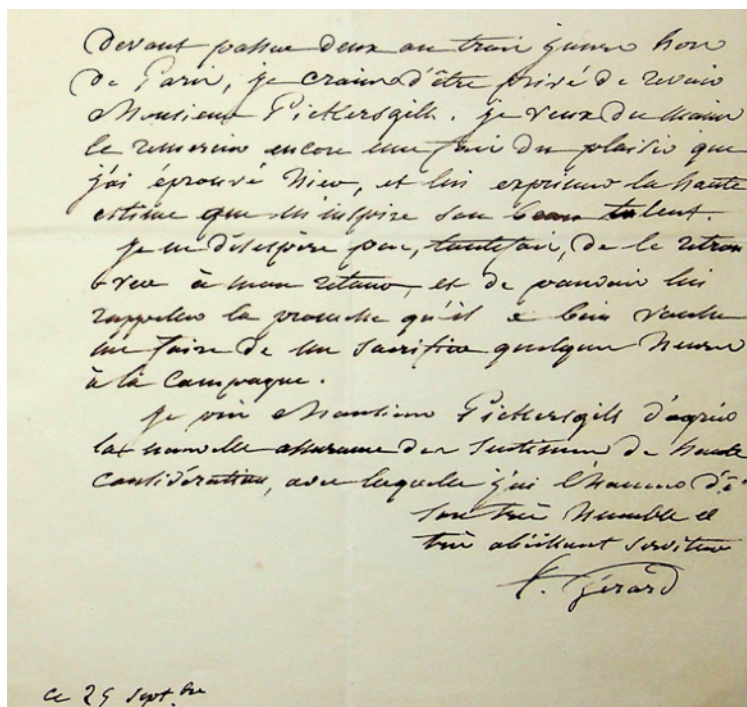 Devant passer deux ou trois jours hors
de Paris, je crains d'être privé de revoir
Monsieur Pickersgill. je veux du moins
le remercier encore une fois du plaisir que
j'ai éprouvé hier, et lui exprimer la haute
estime que m'inspire son beau talent.
je ne désespère pas, toutefois, de le retrou
-ver à mon retour, et de pouvoir lui
rappeller la promesse qu'il a bien voulu
me faire de me sacrifier quelques heures
à la campagne.
je prie Monsieur Pickersgill d'agréer
la nouvelle assurance des sentimens de haute
considération, avec laquelle j'ai l'honneur d'ê
son très humble et
très obéissant serviteur
F. Gérard
ce 29 sept.bre